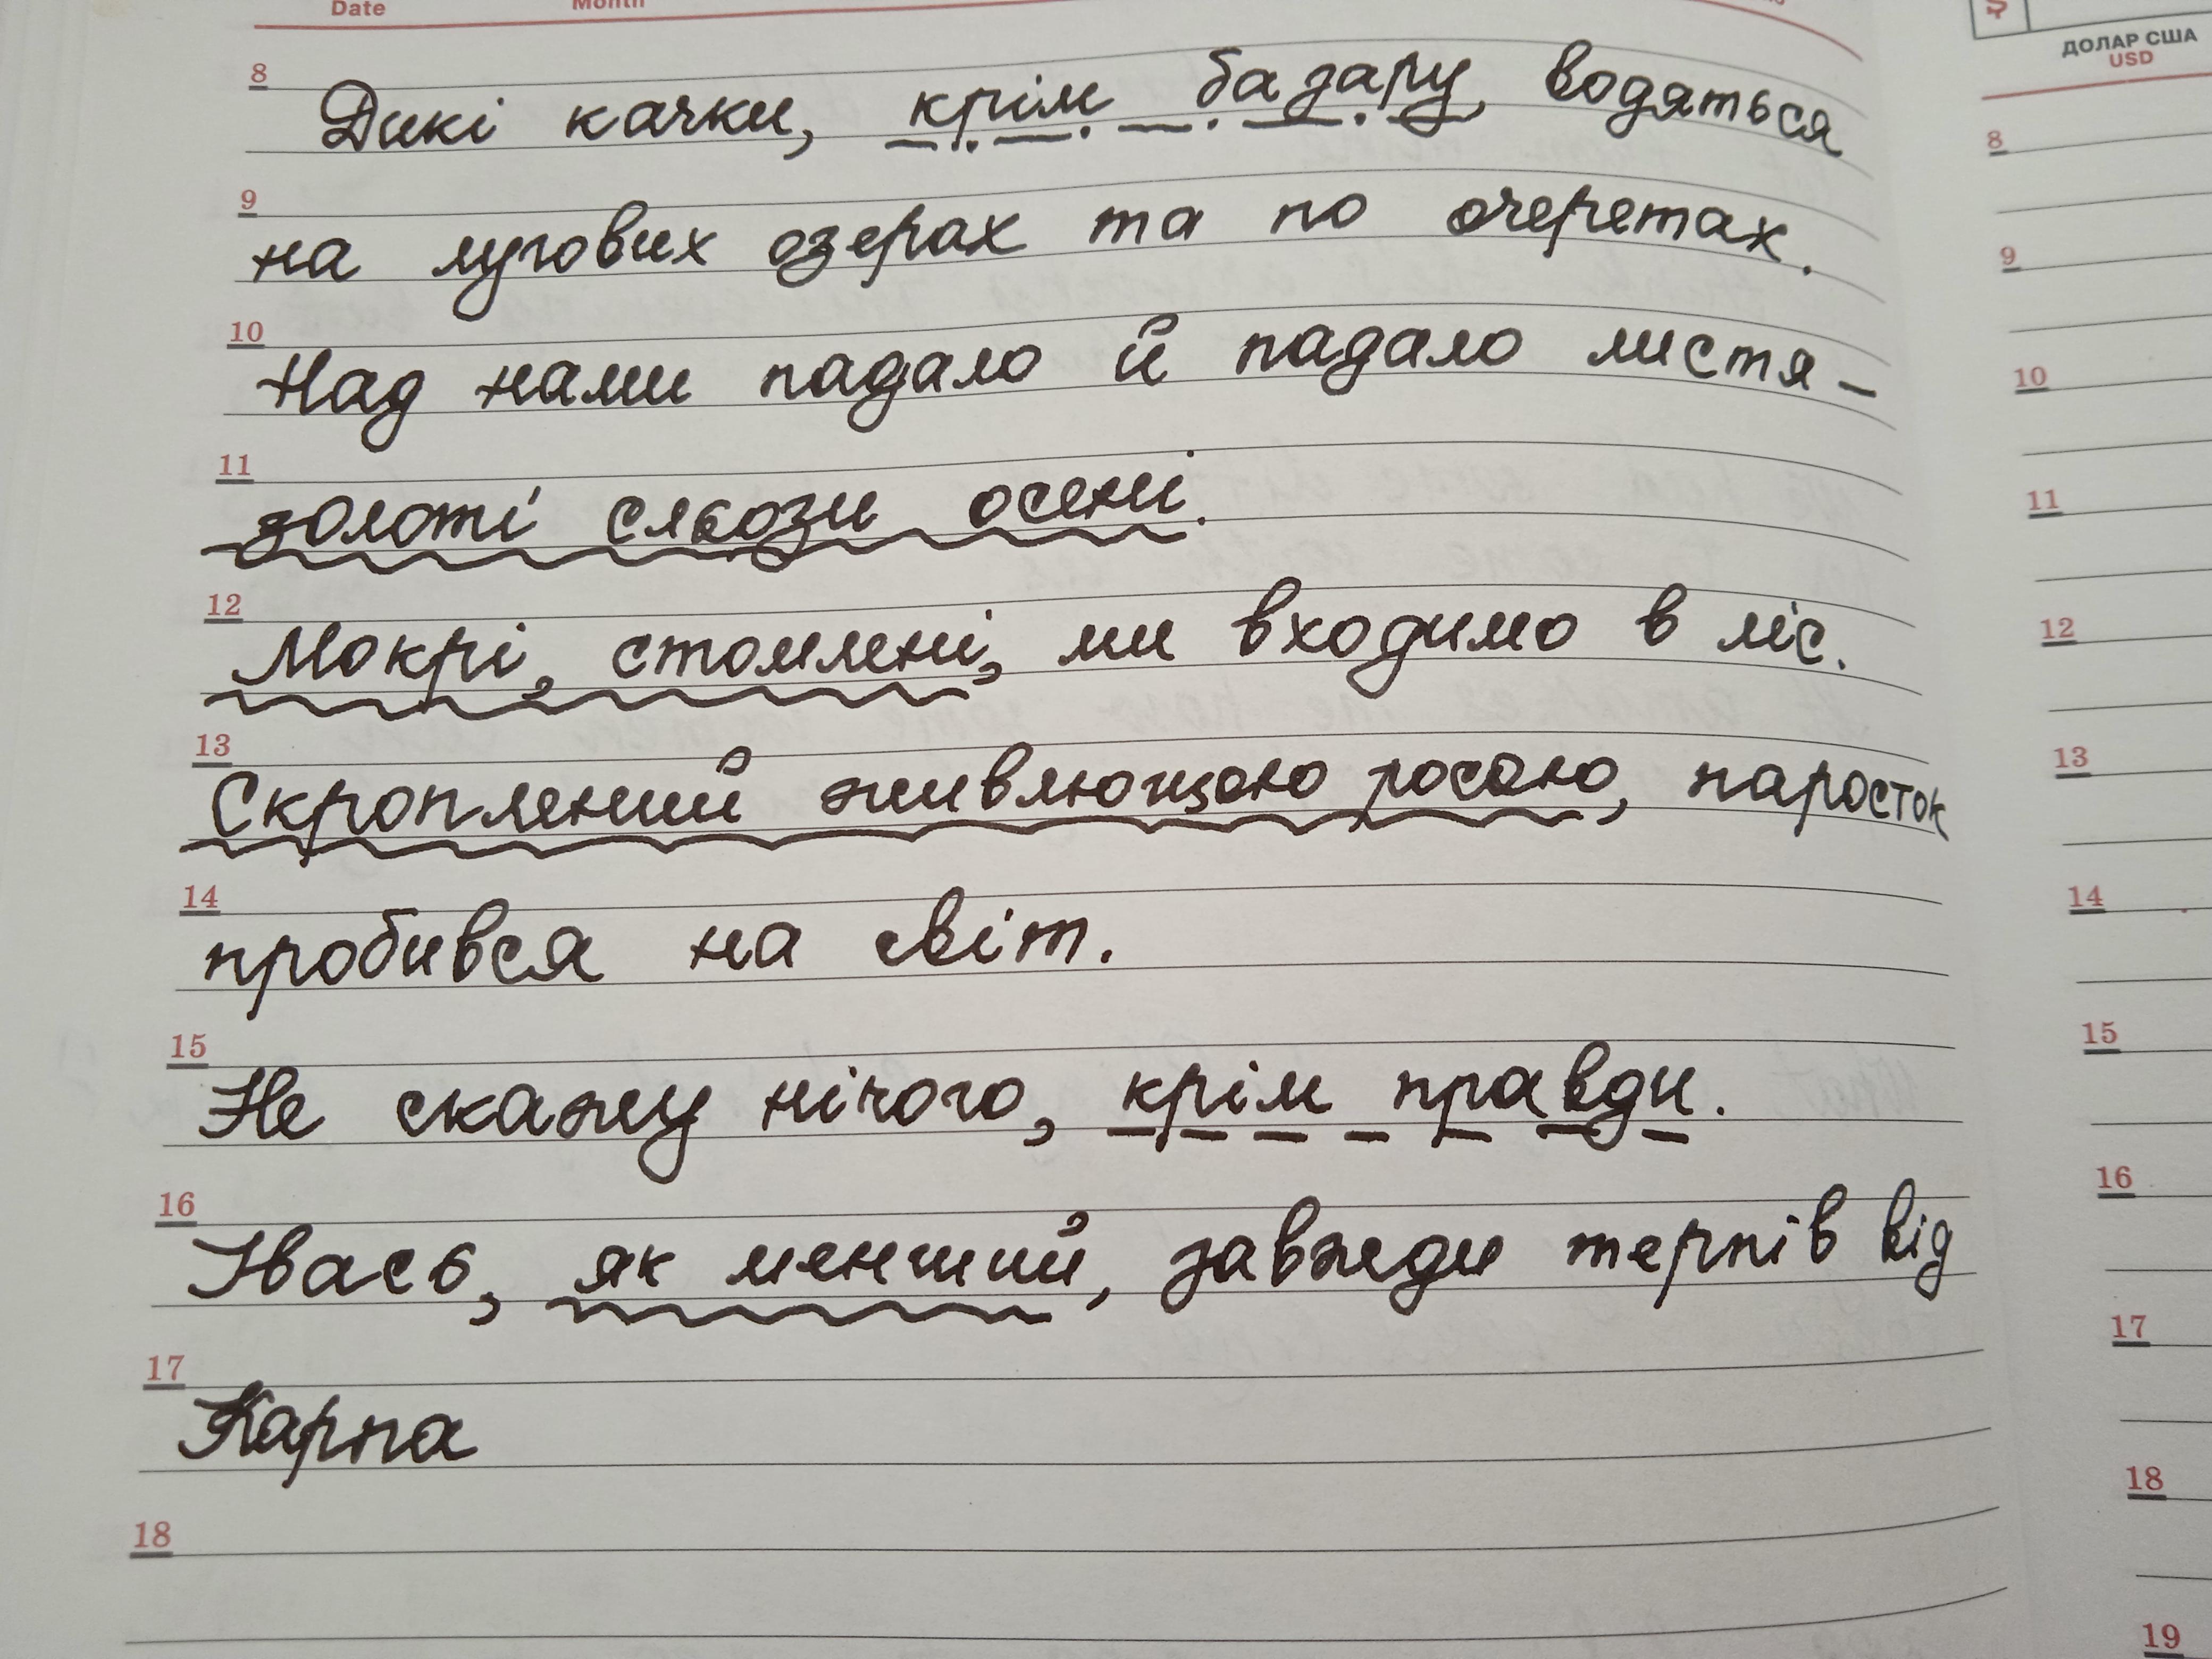 Date Month
8 Дикі качки, крім базару, водяться
9 на лугових озерах та по очеретах.
10 Над нами падало й падало листя –
11 золоті сльози осені.
12 Мокрі, стомлені, ми входимо в ліс.
13 Скроплений живлющою росою, паросток
14 пробився на світ.
15 Не скажу нічого, крім правди.
16 Івась, як менший, завжди терпів від
17 Карпа
18
$
ДОЛАР США
USD
8
9
10
11
12
13
14
15
16
17
18
19